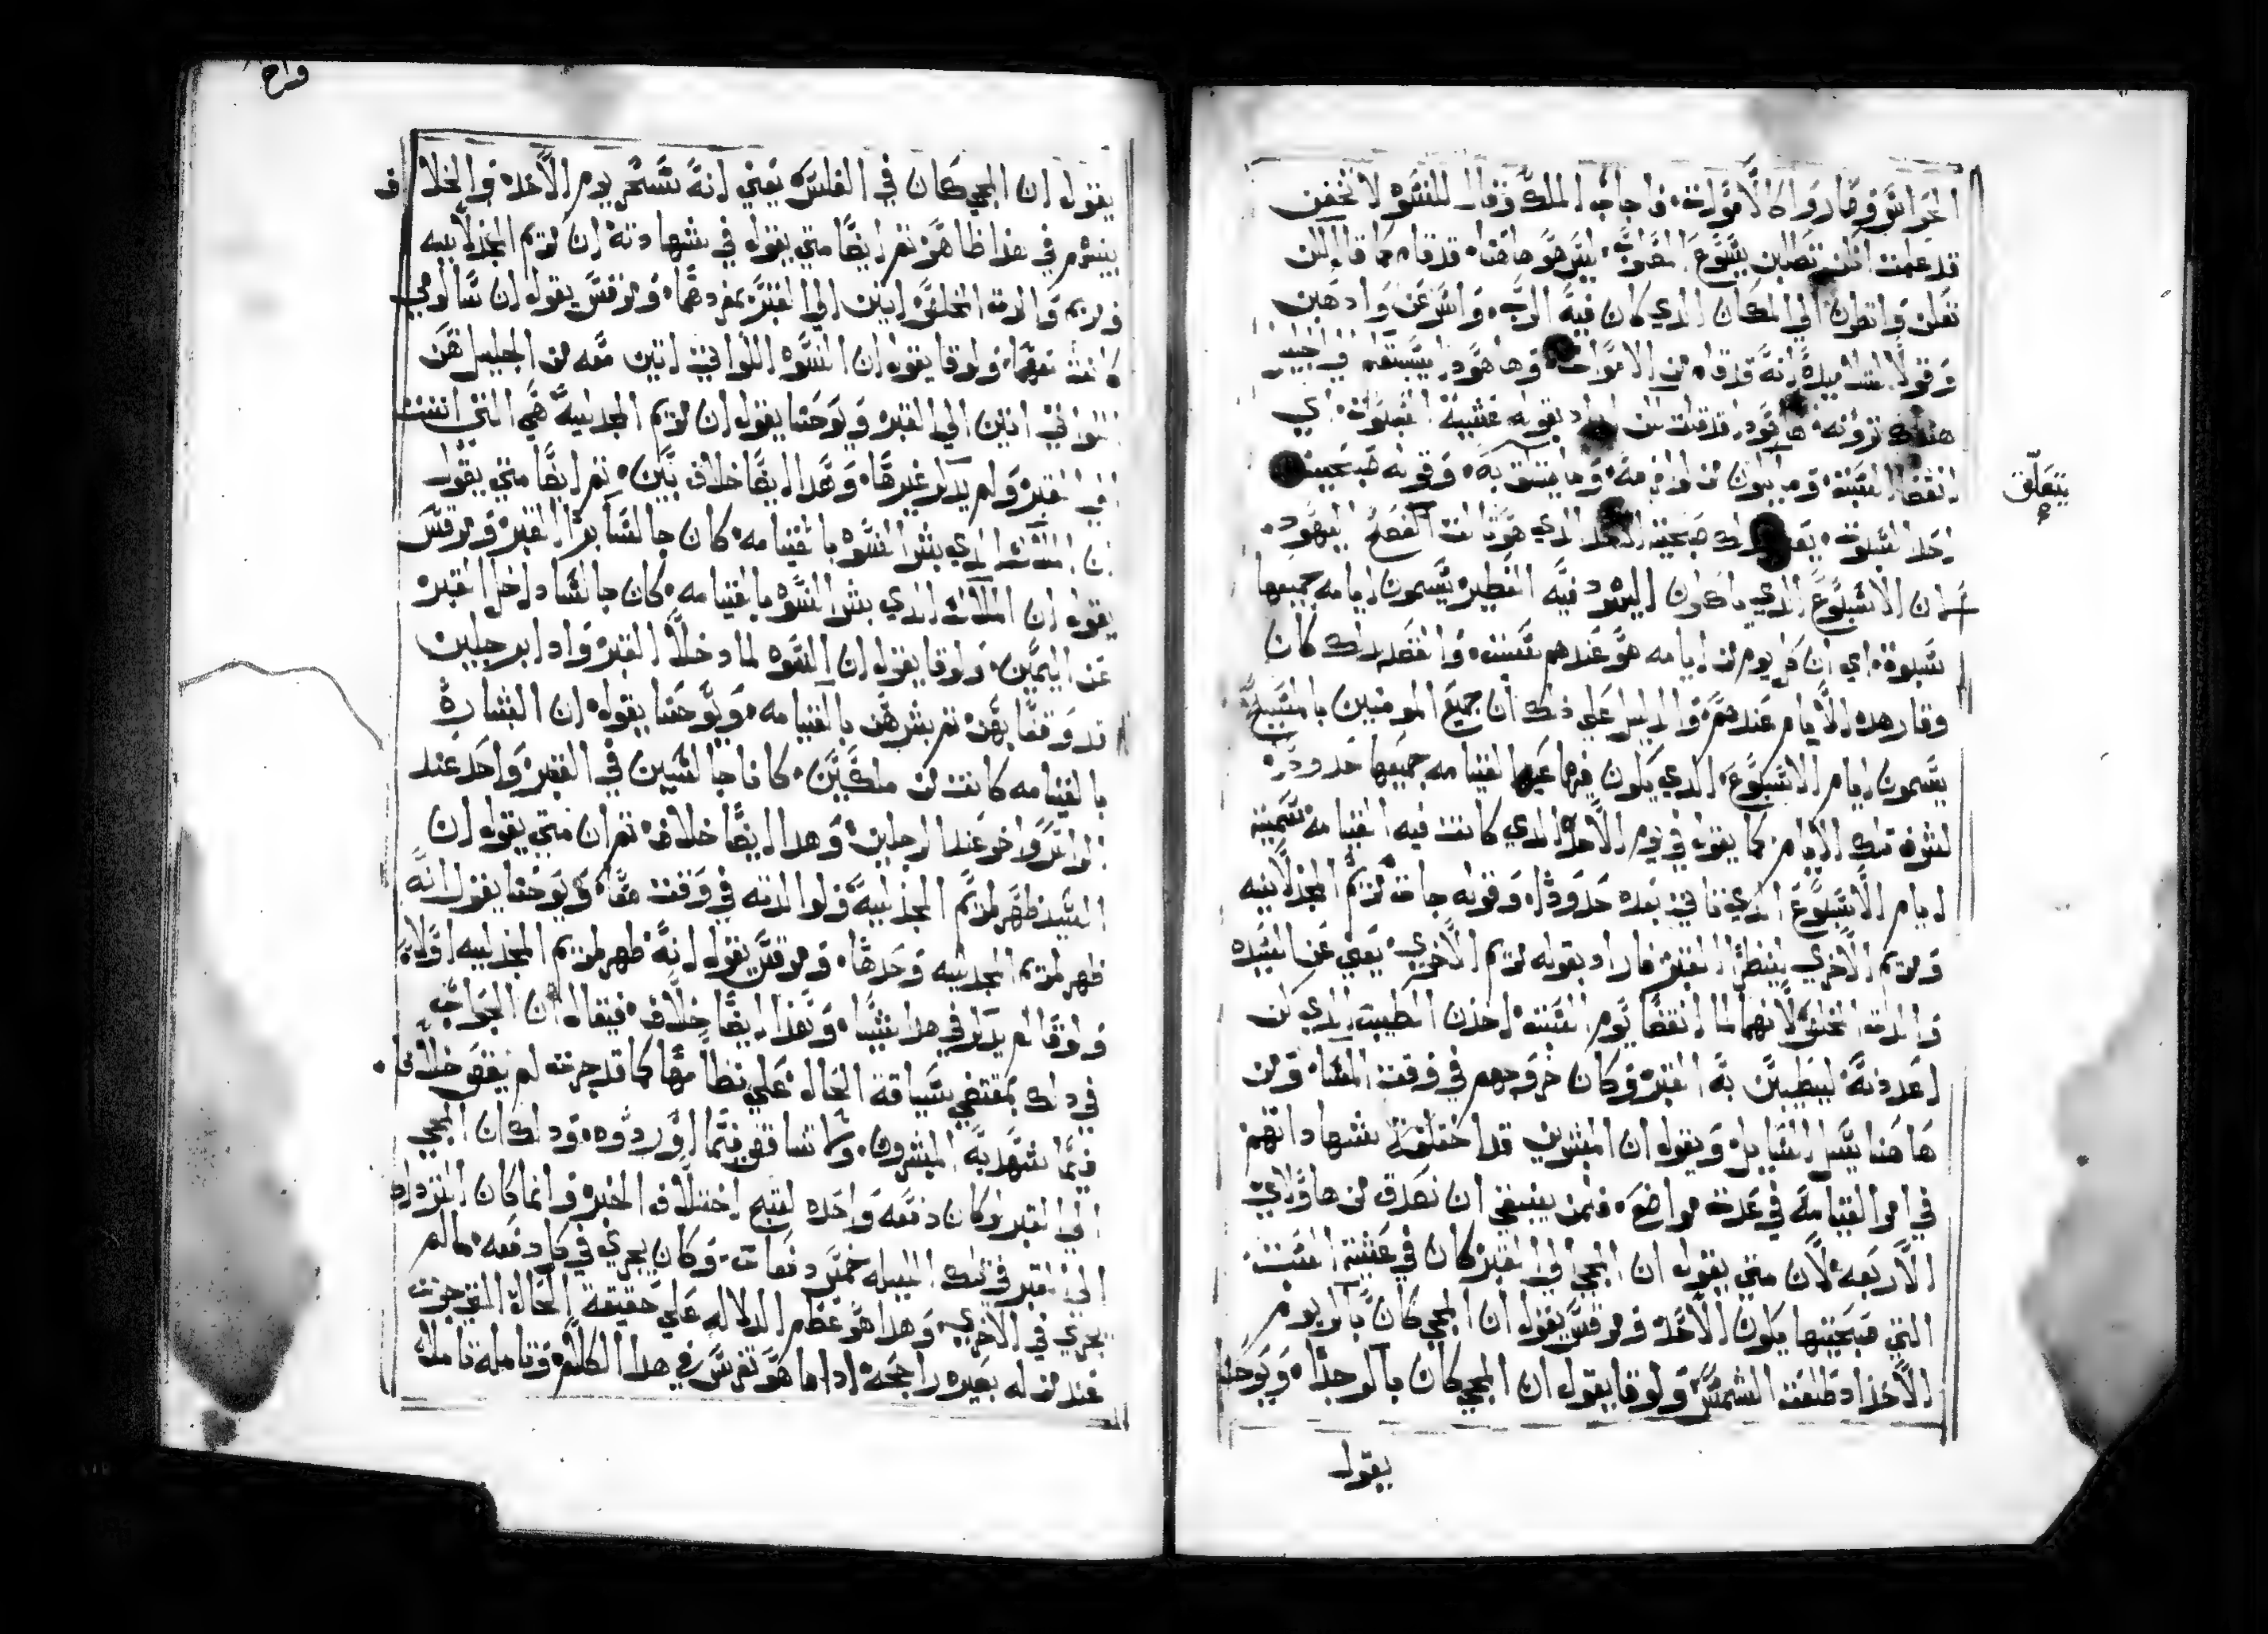 الحراس وصاروا كالاموات. فاجاب الملاك وقال للنسوه لا تخفن
قد علمت انكن تطلبن يسوع المصلوب ليس هو هاهنا. قد قام كما قال لكن
تعلن وانظرن الي المكان الذي كان فيه الرب. واسرعن وادهبن
وقولا لتلاميده انه قد قام من الاموات. وها هودا يسبقكم الي الجليل
هناك ترونه. ها هودا قد قلت لكن اراد بقوله عشية السبوت. اي
انقضا السبت وما يكون من لوازمه. وما يتعلق به. وقوله صبحية
يتعلق
احد السبوت. يعني داك صبحية الاحد الدي هو ثالث الفصح اليهود.
ان الاسبوع الدي ياكلون اليهود فيه الفطير يسمون ايامه جميعها
سبوت. اي ان كل يوم من ايامه هو عندهم سبت. والقصد بداك كان
وقار هده الايام عندهم والدليل علي دلك ان جميع المومنين بالمسيح
يسمون ايام الاسبوع الدي يكون فيها عيد القيامه جميعها حدود
لشرف تلك الايام. كما يقول في يوم الاحد الدي كانت فيه القيامه تسمية
ايام الاسبوع الدي تاتي بعده حدودا. وقوله جات مريم المجدلانيه
ومريم الاخري لينظرا القبر فاراد بقوله مريم الاخري يعني عن السيده
والدت المخلص لانهما لما انقضا يوم السبت اخدن الطيب الدي كن
اعددنه ليطيبن به القبر وكان خروجهم في وقت المسا. ومن
هاهنا يسل السايل ويقول ان المبشرين قد اختلفت شهاداتهم
في امر القيامة في عدت مواضع. فلمن ينبغي ان نصدق من هاولاي
الاربعه لان متي يقول ان المجي الي القبر كان في عشية السبت
التي صبحيتها يكون الاحد ومرقس يقول ان المجي كان باكر يوم
الاحد اد طلعت الشمس ولوقا يقول ان المجي كان باكر جدا. ويوحنا
يقول
يقول ان المجي كان في الغلس يعني انه سحر يوم الاحد. والخلاف
بينهم في هدا ظاهر ثم ايضا متي يقول في شهادته ان مريم المجدلانيه
ومريم والدت المخلص اتين الي القبر بمفردهما. ومرقس يقول ان سالومي
كانت معهما. ولوقا يقول ان النسوه اللواتي اتين معه من الجليل هن
اللواتي اتين الي القبر ويوحنا يقول ان مريم المجدليه هي التي اتت
الي القبر ولم يدكر غيرها. وهدا ايضا خلاف بين. ثم ايضا متي يقول
ان الملاك الدي بشر النسوه بالقيامه. كان جالسا برا القبر ومرقس
يقول ان الملاك الدي بشر النسوه بالقيامه كان جالسا داخل القبر
عن اليمين. ولوقا يقول ان النسوه لما دخلا القبر وادا برجلين
قد وقفا بهن ثم بشرهن بالقيامه. ويوحنا يقول. ان البشارة
بالقيامه كانت من ملكين. كانا جالسين في القبر واحد عند
الراس واخر عند الرجلين. وهدا ايضا خلاف. ثم ان متي يقول ان
السيد ظهر لمريم المجدليه ولوالدته في وقت معا. ويوحنا يقول انه
ظهر لمريم المجدليه وحدها. ومرقس يقول انه ظهر لمريم المجدليه اولا.
ولوقا لم يدكر في هدا شيا. وهدا ايضا خلاف. فيقال ان الجواب
في داك بمقتضي سياقة الحال علي نظامها كما قد جرت لم يقع خلاف.
فيما شهد به المبشرون. ولا تناقض فيما اوردوه. ودلك ان المجي
الي القبر لو كان دفعه واحده لقبح اختلاف الخبر وانما كان التردد
الي القبر في تلك الليله خمس دفعات. وكان يجري في كل دفعه مالم
يجري في الاخري. وهدا هو عظم الدلاله علي حقيقة الحال التي جرت
عند من له بصيره راجحه. ادا ما هو تفرس في هدا الكلام وتامله تاملا